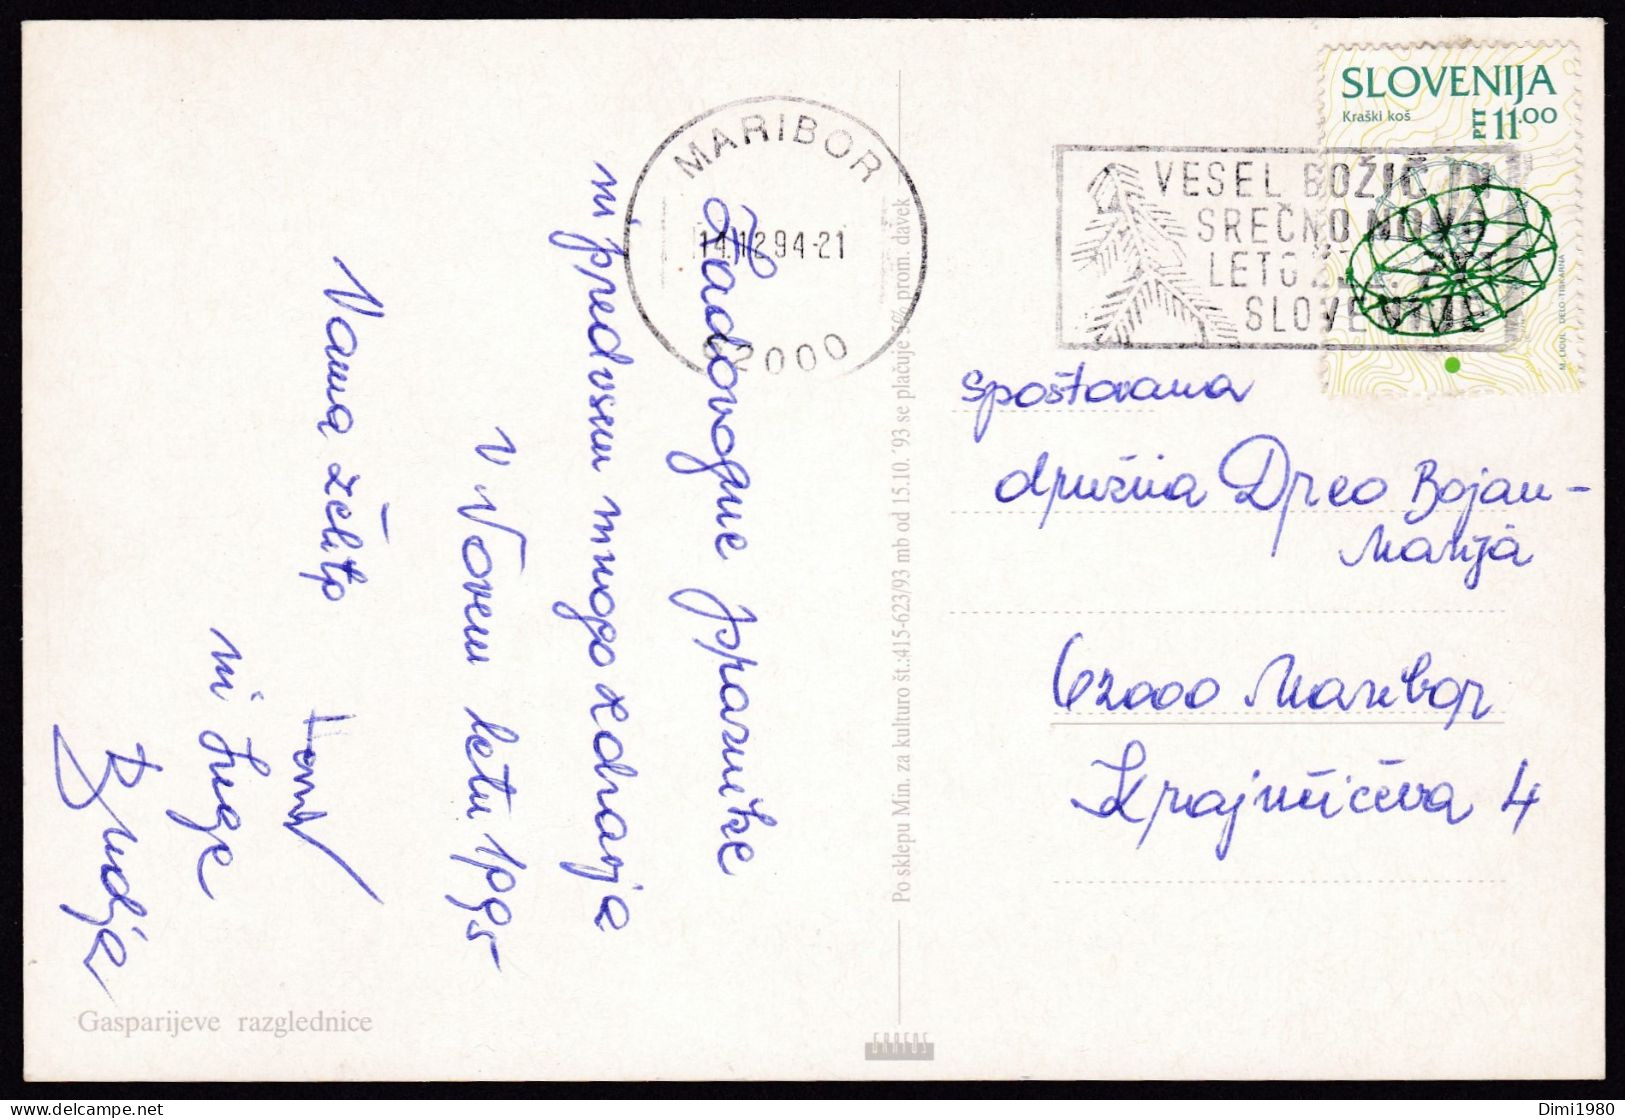 Zadovoljne praznike
in predvsem mnogo zdravja
v Novem letu 1995
Vama želita
in Inge
MARIBOR
14.12.94-21
62000
VESEL BOŽIČ IN
SREČNO NOVO
LETO ŽELI PTT
SLOVENIJE
SLOVENIJA
Kraški koš
PTT 11.00
M. LICUL DELO-TISKARNA
spoštovana
družina Dreo Bojan-
Marija
62000 Maribor
Krajnčičeva 4
Po sklepu Min. za kulturo št.:415-623/93 mb od 15.10.'93 se plačuje 5% prom. davek
Gasparijeve razglednice
Dimi1980